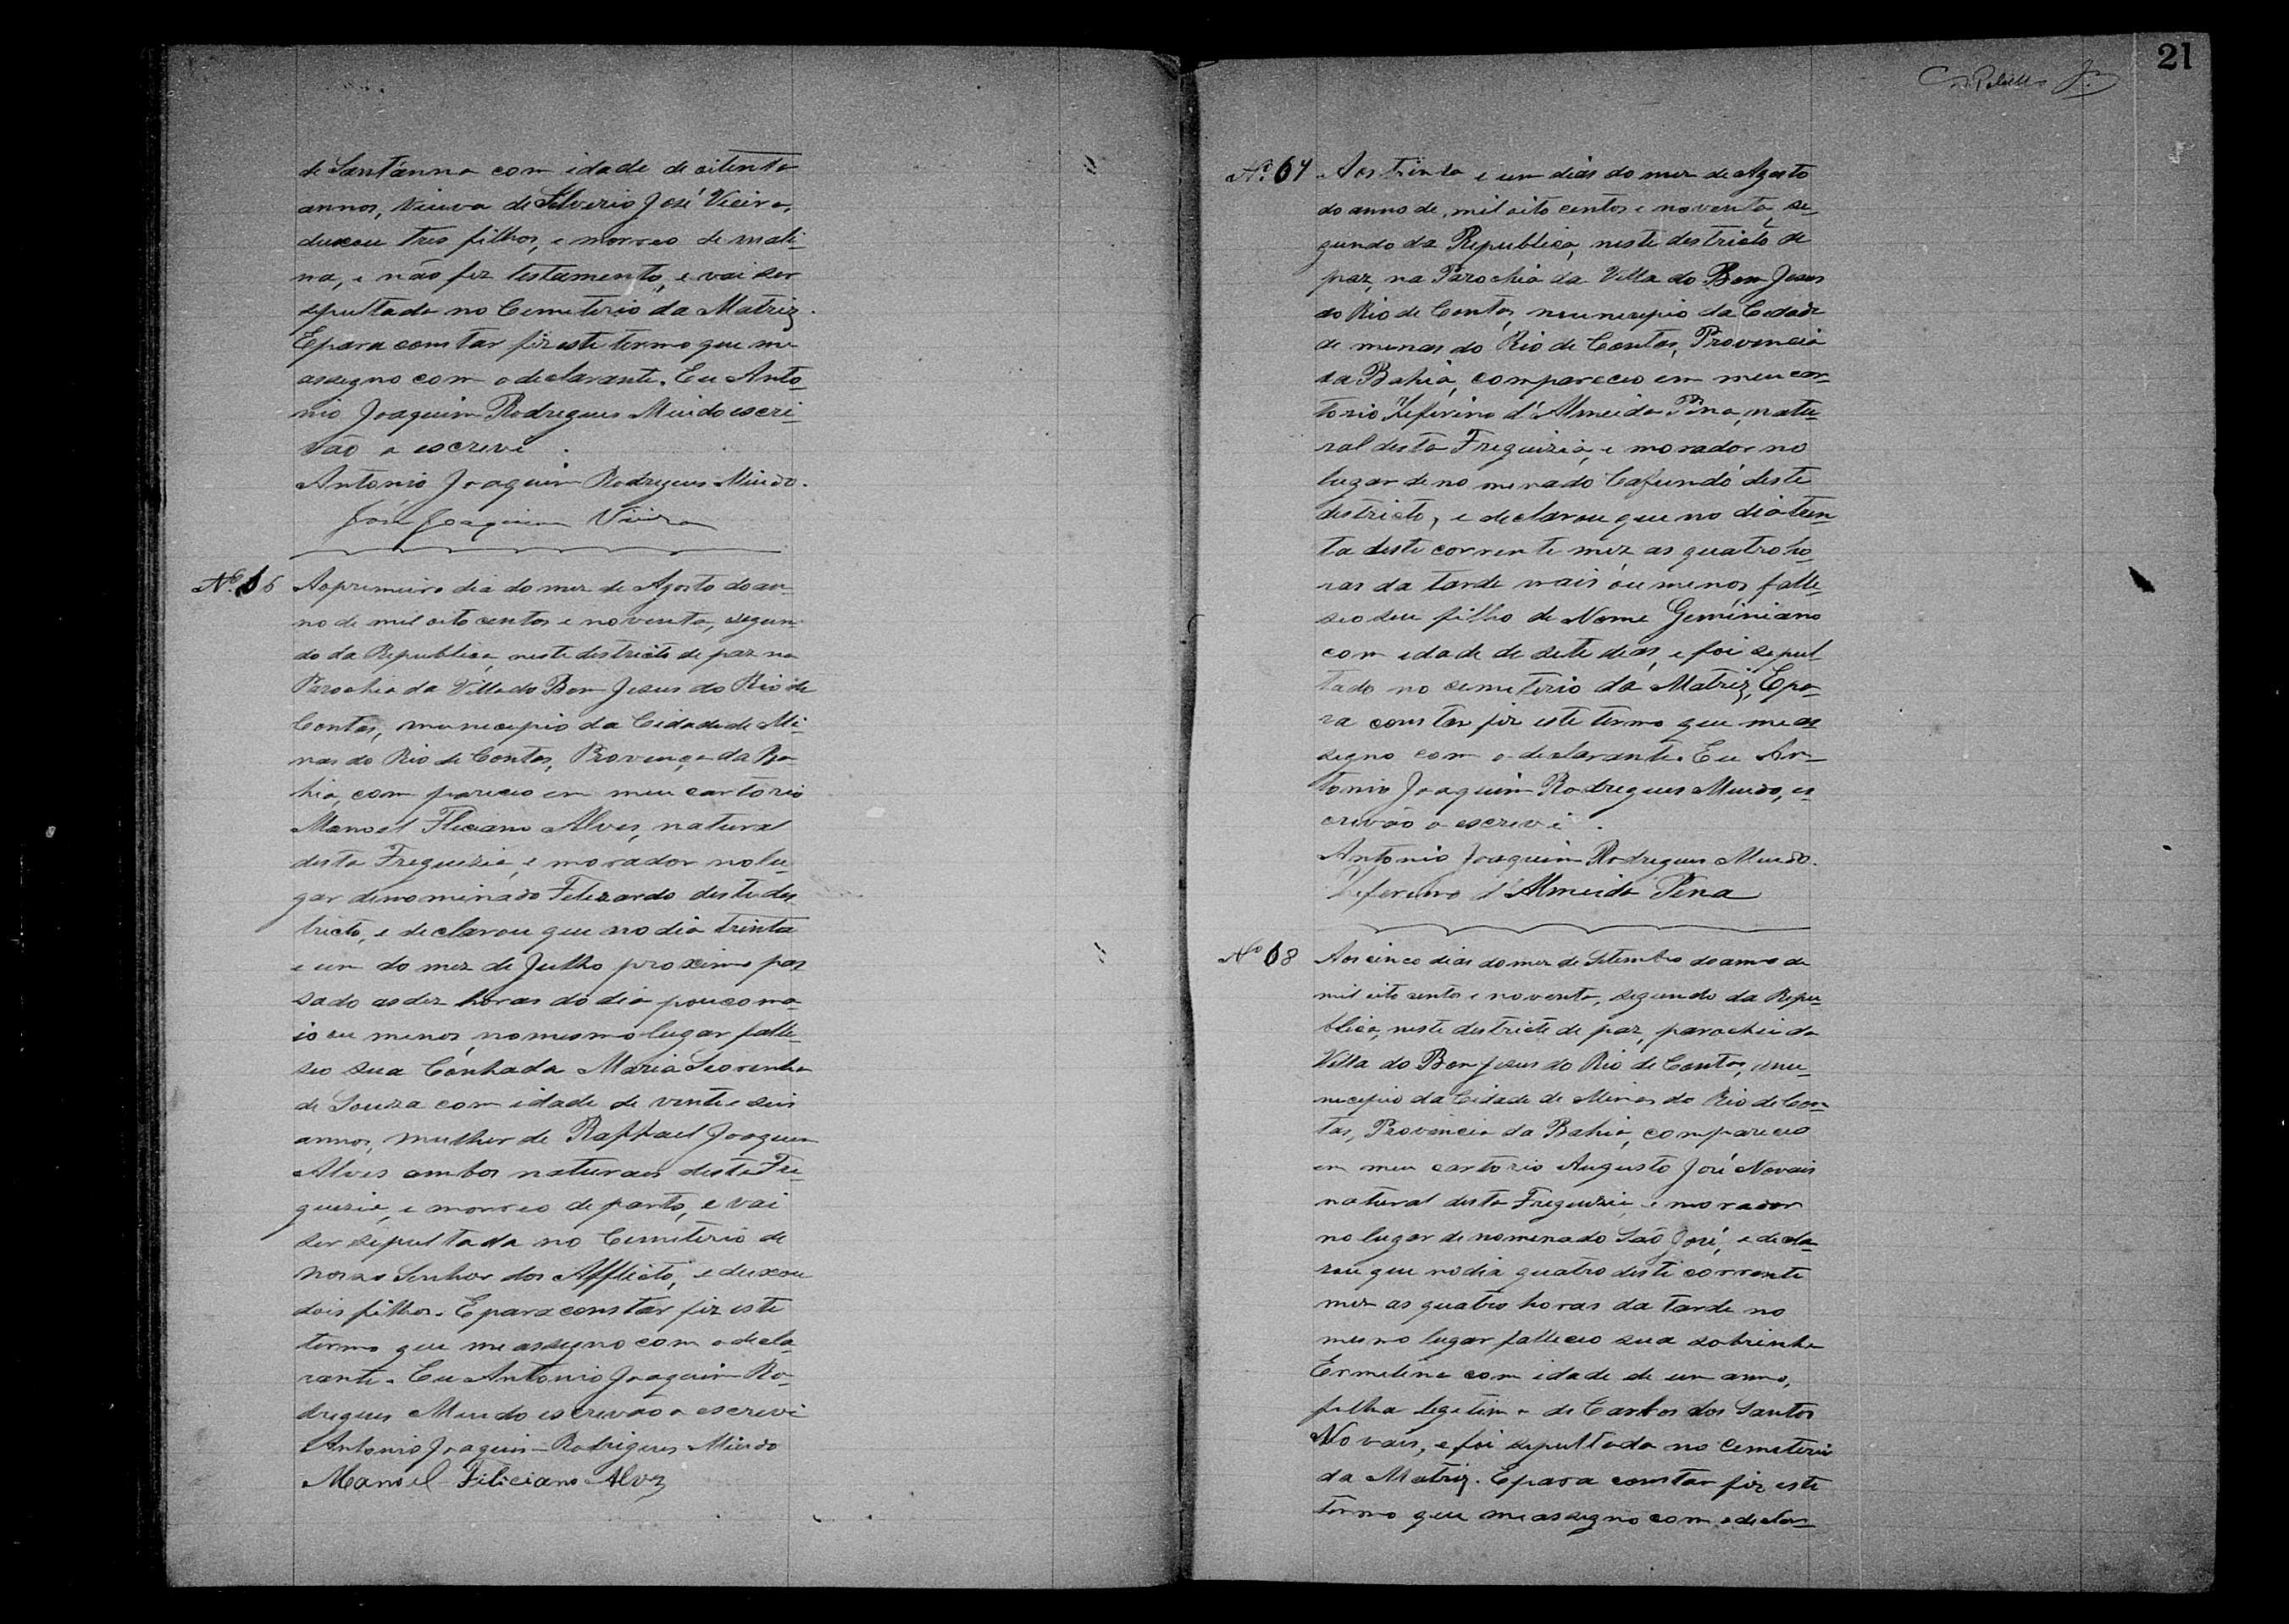 de Sant'anna com idade de oitenta
annos, viuva de Silverio José Vieira,
duxou tres filhos, e morreo de mali-
na, e não fez testamento, e vai ser
sepultada no Cemeterio da Matriz.
E para constar fiz este termo que me
assegno com o declarante. Eu Anto-
nio Joaquim Rodrigues Miudo escri-
vão o escrevi.
Antonio Joaquim Rodrigues Miudo.
José Joaquim Vieira
Nº 66 Ao premeiro dia do mez de Agosto do an-
no de mil oito centos e noventa, segun-
do da Republica, neste destricto de paz na
Parochia da Villa do Bom Jesus do Rio de
Contas, municepio da Cidade de Mi-
nas do Rio de Contas, Provença da Ba-
hia, compareceo em meu cartorio
Manoel Fliciano Alves, natural
desta Freguezia, e morador no lu-
gar denomenado Felizardo deste des-
tricto, e declarou que no dia trinta
e um do mez de Julho proximo pas
sado as dez horas do dia pouco ma-
is ou menos, no mesmo lugar falle-
seo sua Conhada Maria
de Souza com idade de vinte e seis
annos, mulher de Raphael Joaquim
Alves ambos naturaes desta Fre-
guezia, e morreo de parto, e vai
ser sepultada no Cemiterio de
nosso Senhor dos Afflicto, e deixou
dois filhos. E para constar fiz este
termo que me assegno com o decla-
rante. Eu Antonio Joaquim Ro-
drigues Miudo escrevão o escrevi
Antonio Joaquim Rodrigues Miudo
Manoel Filiciano Alvz
21
Nº 67 Aos trinta e um dias do mez de Agosto
do anno de mil oito centos e noventa, se-
gundo da Republica, neste destricto de
paz, na Parochia da Villa do Bom Jesus
do Rio de Contas, municepio da Cedade
de menas do Rio de Contas, Provencia
da Bahia, compareceo em meu car-
torio Zeferino d'Almeida Pena, natu-
ral desta Freguizia, e morador no
lugar denomenado Cafundó deste
destricto, e declarou que no dia trin-
ta deste corrente mez, as quatro ho-
ras da tarde mais ou menos, falle-
seo seu filho de Nome Geminiano
com edade de sete dias, e foi sepul
tado no cemeterio da Matriz, E pa-
ra constar fiz este termo que me as
segno com o declarante. Eu An-
tonio Joaquim Rodrigues Miudo, es
crevão o escrevi.
Antonio Joaquim Rodrigues Miudo.
Zeferino d'Almeida Pena
Nº 68 Aos cinco dias do mez de Setembro do anno de
mil oito centos e noventa, segundo da Repu-
blica, neste destricto de paz, parochia da
Villa do Bom Jesus do Rio de Contas, mu-
necepio da Cidade de Minas do Rio de Con-
tas, Provincia da Bahia, compareceo
em meu cartorio Augusto José Novais
natural desta Freguezia, e morador
no lugar denomenado São José, e decla-
rou que no dia quatro deste corrente
mez as quatro horas da tarde no
mesmo lugar falleceo sua sobrinha
Ermelina com idade de um anno,
filha legetima de Carlos dos Santos
Novais, e foi sepultada no Cemeterio
da Matriz. E para constar fiz este
termo que me assegno com o decla-